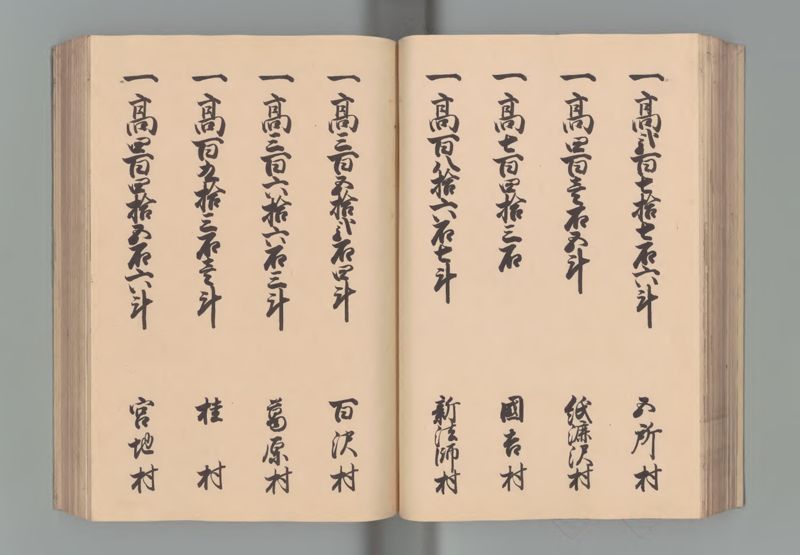 一 高弐百七拾七石六斗 五所村
一 高四百壱石五斗 紙漉沢村
一 高七百四拾三石 國吉村
一 高百八拾六石七斗 新法師村
一 高三百五拾弐石四斗 百沢村
一 高三百六拾六石三斗 葛原村
一 高百九拾三石壱斗 桂村
一 高四百四拾五石六斗 宮地村